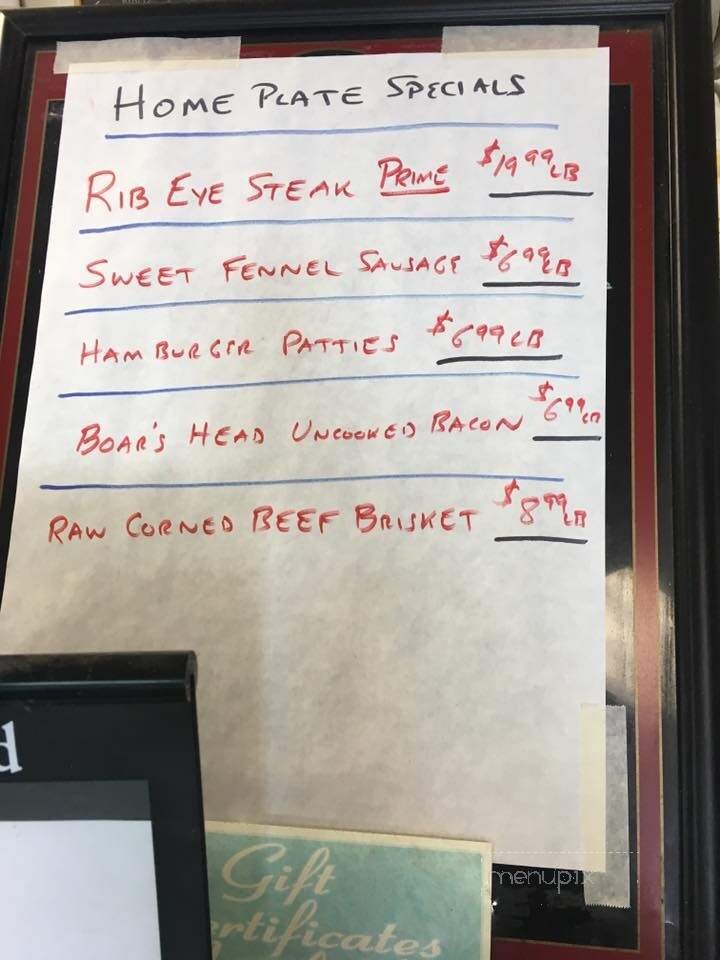 HOME PLATE SPECIALS
RIB EYE STEAK PRIME $19.99 LB
SWEET FENNEL SAUSAGE $6.99 LB
HAMBURGER PATTIES $6.99 LB
BOAR'S HEAD UNCOOKED BACON $6.99 LB
RAW CORNED BEEF BRISKET $8.99 LB
d
Gift
ertificates
menupix